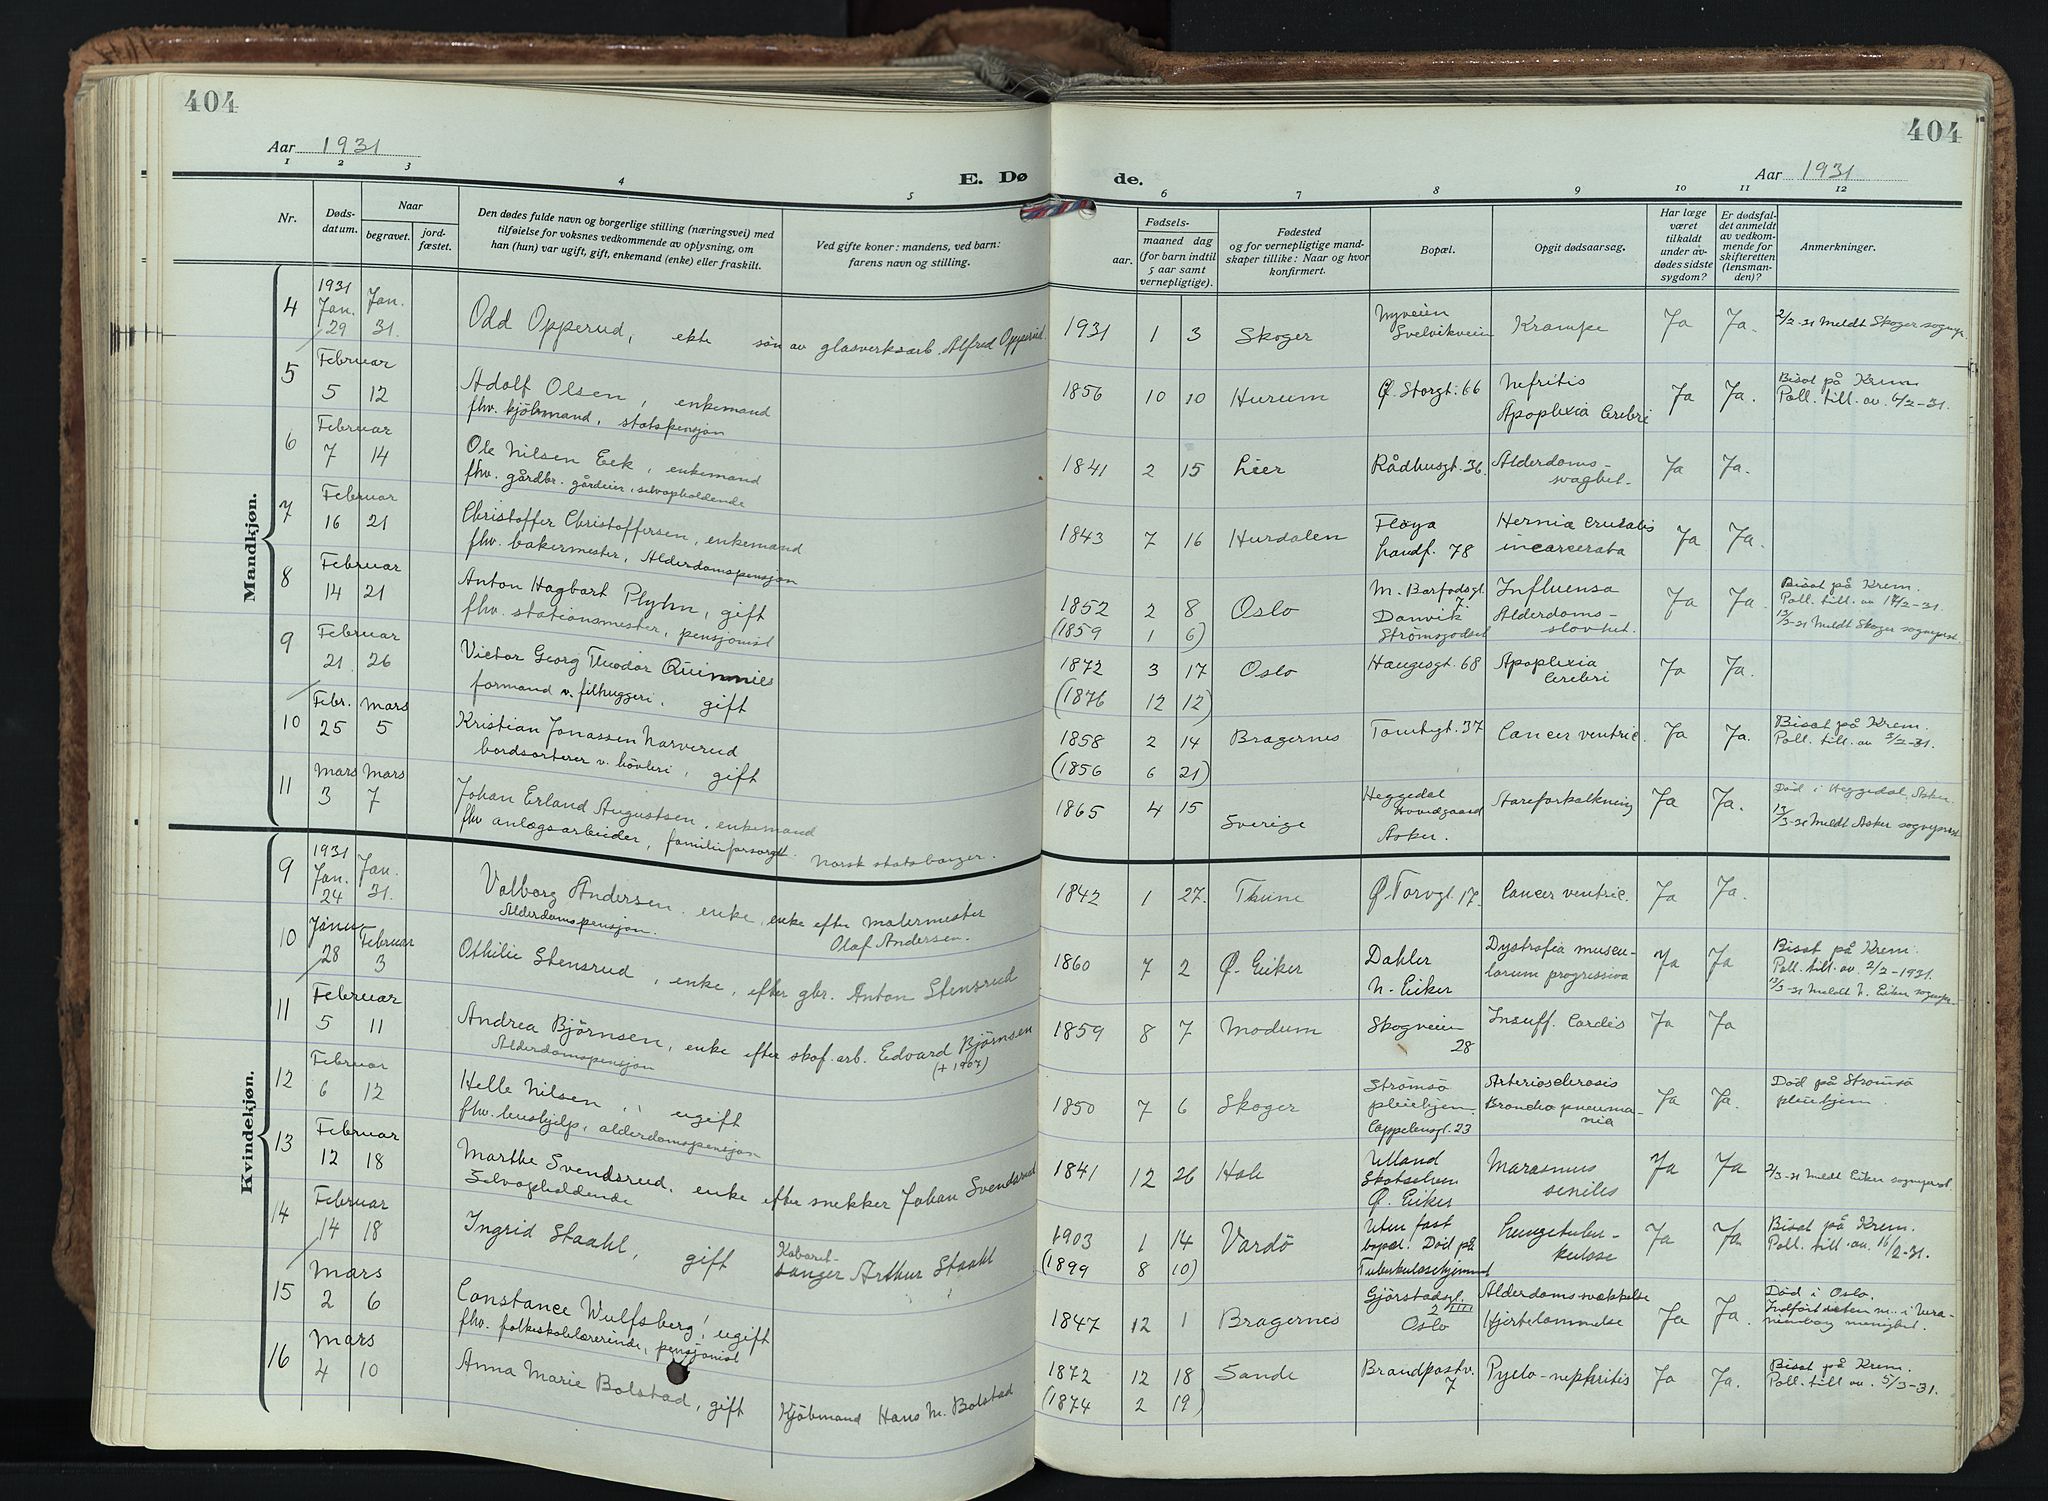 404
404
Aar 1931
Aar 1931
E. Dø
de.
1 2 3 4 5 6 7 8 9 10 11 12
Nr.
Døds-
datum.
Naar
begravet.
jord-
fæstet.
Den dødes fulde navn og borgerlige stilling (næringsvei) med
tilføielse for voksnes vedkommende av oplysning, om
han (hun) var ugift, gift, enkemand (enke) eller fraskilt.
Ved gifte koner: mandens, ved barn:
farens navn og stilling.
Fødsels-
aar.
maaned dag
(for barn indtil
5 aar samt
vernepligtige).
Fødested
og for vernepligtige mand-
skaper tillike: Naar og hvor
konfirmert.
Bopæl.
Opgit dødsaarsag.
Har læge
været
tilkaldt
under av-
dødes sidste
sygdom?
Er dødsfal-
det anmeldt
av vedkom-
mende for
skifteretten
(lensman-
den)?
Anmerkninger.
Mandkjøn.
4 1931 Jan. 29 Jan. 31.
Odd Opperud, ekte søn av glasverksarb. Alfred Opperud.
1931 1 3 Skoger
Nyveien
Svelvikveien
Krampe Ja Ja. 2/2-31 Meldt Skoger sognepr.
5 Februar 5 12
Adolf Olsen, enkemand
fhv. kjöbmand, statspensjon
1856 10 10 Hurum Ø. Storgt. 66
Nefritis
Apoplexia Cerebri
Ja Ja.
Bisat på Krem
Poll. till. av. 6/2-31.
6 Februar 7 14
Ole Nilsen Eek, enkemand
fhv. gårdbr. gårdeier, selvopholdende
1841 2 15 Lier Rådhusgt. 36.
Alderdoms-
svaghet.
Ja Ja.
7 Februar 16 21
Christoffer Christoffersen, enkemand
fhv. bakermester, Alderdomspensjon
1843 7 16 Hurdalen
Fløya
Landf. 78
Hernia Cruralis
incarcerata
Ja Ja.
8 Februar 14 21
Anton Hagbart Plyhn, gift
fhv. stationsmester, pensjonist
1852 2 8 Oslo
(1859 1 6)
M. Barfodsgt.
7.
Danvik
Strømsgodset
Influensa
Alderdoms-
slovhet.
Ja Ja.
Bisat på Krem.
Poll. till. av 17/2-31.
13/3-31 Meldt Skoger sogneprst.
9 Februar 21 26
Victor Georg Theodor Quinnies
formand v. filhuggeri, gift
1872 3 17 Oslo
(1876 12 12)
Haugesgt. 68
Apoplexia
Cerebri
Ja Ja.
10 Febr. 25 Mars 5
Kristian Jonassen Narverud
bordsorterer v. hövleri, gift
1858 2 14 Bragernes
(1856 6 21)
Tomtegt. 37 Cancer ventric. Ja Ja.
Bisat på Krem.
Poll. till. av
11 Mars 3 Mars 7
Johan Erland Augustsen, enkemand
fhv anlægsarbeider, familieforsørget. Norsk statsborger.
1865 4 15 Sverige
Heggedal
Hovedgaard
Asker.
Aareforkalkning Ja Ja.
Död i Heggedal, Asker
13/3-31 Meldt Asker sogneprest
Kvindekjøn.
9 1931 Jan. 24 Jan. 31.
Valborg Andersen, enke, enke efter malermester
Alderdomspensjon. Olaf Andersen.
1842 1 27. Thune Ø. Torvgt. 17 Cancer ventric. Ja Ja.
10 Januar 28 Februar 3
Othilie Stensrud, enke, efter gbr. Anton Stensrud
1860 7 2 Ø. Eiker
Dahler
N. Eiker
Dystrofia muscu-
lorum progressiva
Ja Ja
Bisat på Krem.
Poll. till. av. 2/2-1931.
13/3-31 Meldt N. Eiker sognepr.
11 Februar 5 11
Andrea Björnsen, enke efter skof. arb. Edvard Björnsen
Alderdomspensjon (+ 1907)
1859 8 7 Modum
Skogveien
28
Insuff. Cordis Ja Ja
12 Februar 6 12
Helle Nilsen, ugift
fhv. hushjelp, alderdomspensjon
1850 7 6 Skoger
Strømsö
pleiehjem
Cappelensgt. 23
Arteriosclerosis
Broncho pneumo-
nia
Ja Ja.
Död på Strømsö
pleiehjem.
13 Februar 12 18
Marthe Svendsrud, enke efter snekker Johan Svendsrud
Selvopholdende
1841 12 26 Hole
Ulland
Skotselven
Ø. Eiker
Marasmus
seniles
Ja Ja
2/3-31 Meldt Eiker sogneprst.
14 Februar 14 18
Ingrid Staahl, gift
Kabaret-
sanger Arthur Staahl
1903 1 14 Vardö
(1899 8 10)
Uten fast
bopæl. Död på
Tuberkulosehjemmet
Lungetuber-
kulose
Ja Ja
Bisat på Krem.
Poll. till. av. 16/2-31.
15 Mars 2 6
Constance Wulfsberg, ugift
fhv. folkeskolelærerinde, pensjonist
1847 12 1 Bragernes
Gjörstadsgt.
2 III
Oslo
Alderdomssvækkelse
Hjertelammelse
Ja Ja.
Död i Oslo.
Indfört uten nr. i Ura-
nienborg menighet.
16 Mars 4 10
Anna Marie Bolstad, gift
Kjöbmand Hans M. Bolstad
1872 12 18 Sande
(1874 2 19)
Brandpostv.
7
Pyelo-nephritis Ja Ja.
Bisat på Krem.
Poll. till av. 5/3-31.